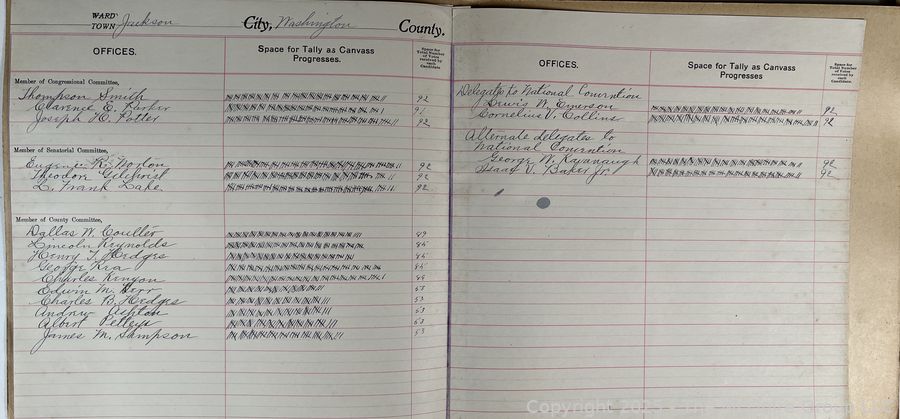 WARD
TOWN Jackson City, Washington County.
OFFICES. Space for Tally as Canvass Progresses. Space for Total Number of Votes received by each Candidate
Member of Congressional Committee,
Thompson Smith 92
Clarence E. Parker 91
Joseph H. Potter 92
Member of Senatorial Committee,
Eugene R. Norton 92
Theodore Gilchrist 92
L. Frank Lake 92
Member of County Committee,
Dallas W. Coulter
Lincoln Reynolds
Henry T. Hedges
George
Charles Kenyon
Edwin M. Herr 53
Charles B. Hedges 53
Andrew Ashton 53
Albert 53
James M. Sampson 53
OFFICES. Space for Tally as Canvass Progresses Space for Total Number of Votes received by each Candidate.
Delegate to National Convention
Lewis M. Emerson 92
Cornelius V. Collins 92
Alternate delegates to
National Convention
George W. Kavanaugh 92
Isaac V. Baker Jr. 92
Copyright